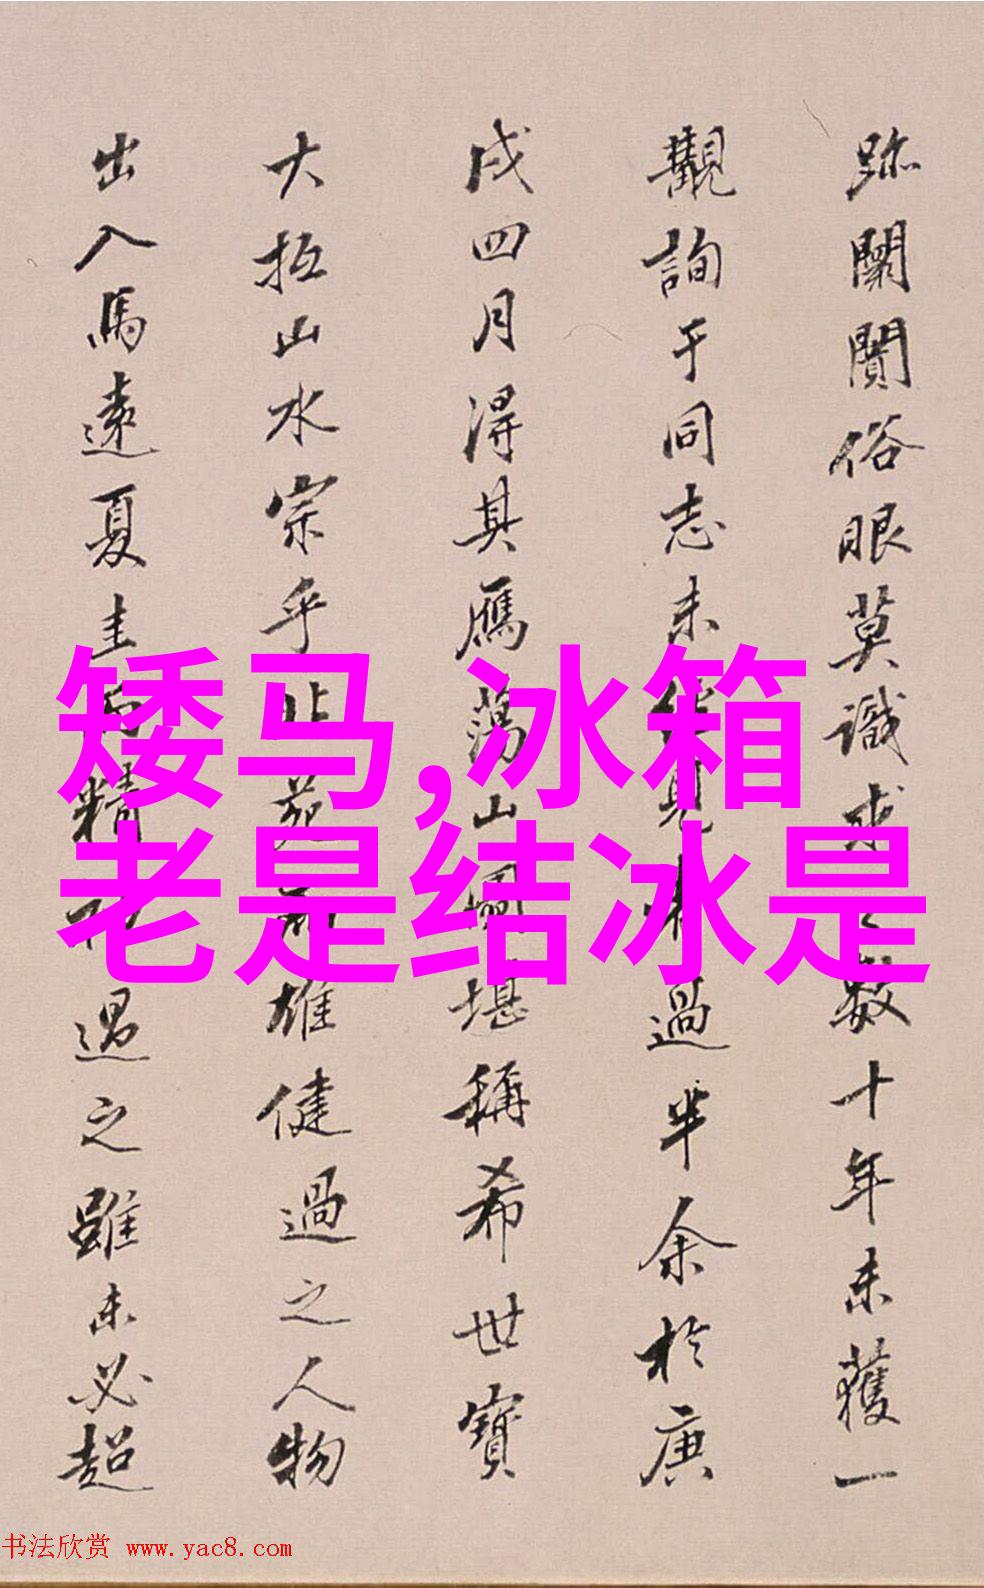 跡闌闠俗眼莫識求之數十年未獲一
觀詢于同志未見過半余於庚
戌四月得其鴈蕩山圖堪稱希世寶
大抵山水宗乎北苑而雄健過之人物
出入馬遠夏圭而精過之雖未必超
矮马,冰箱
老是结冰是
书法欣赏 www.yac8.com